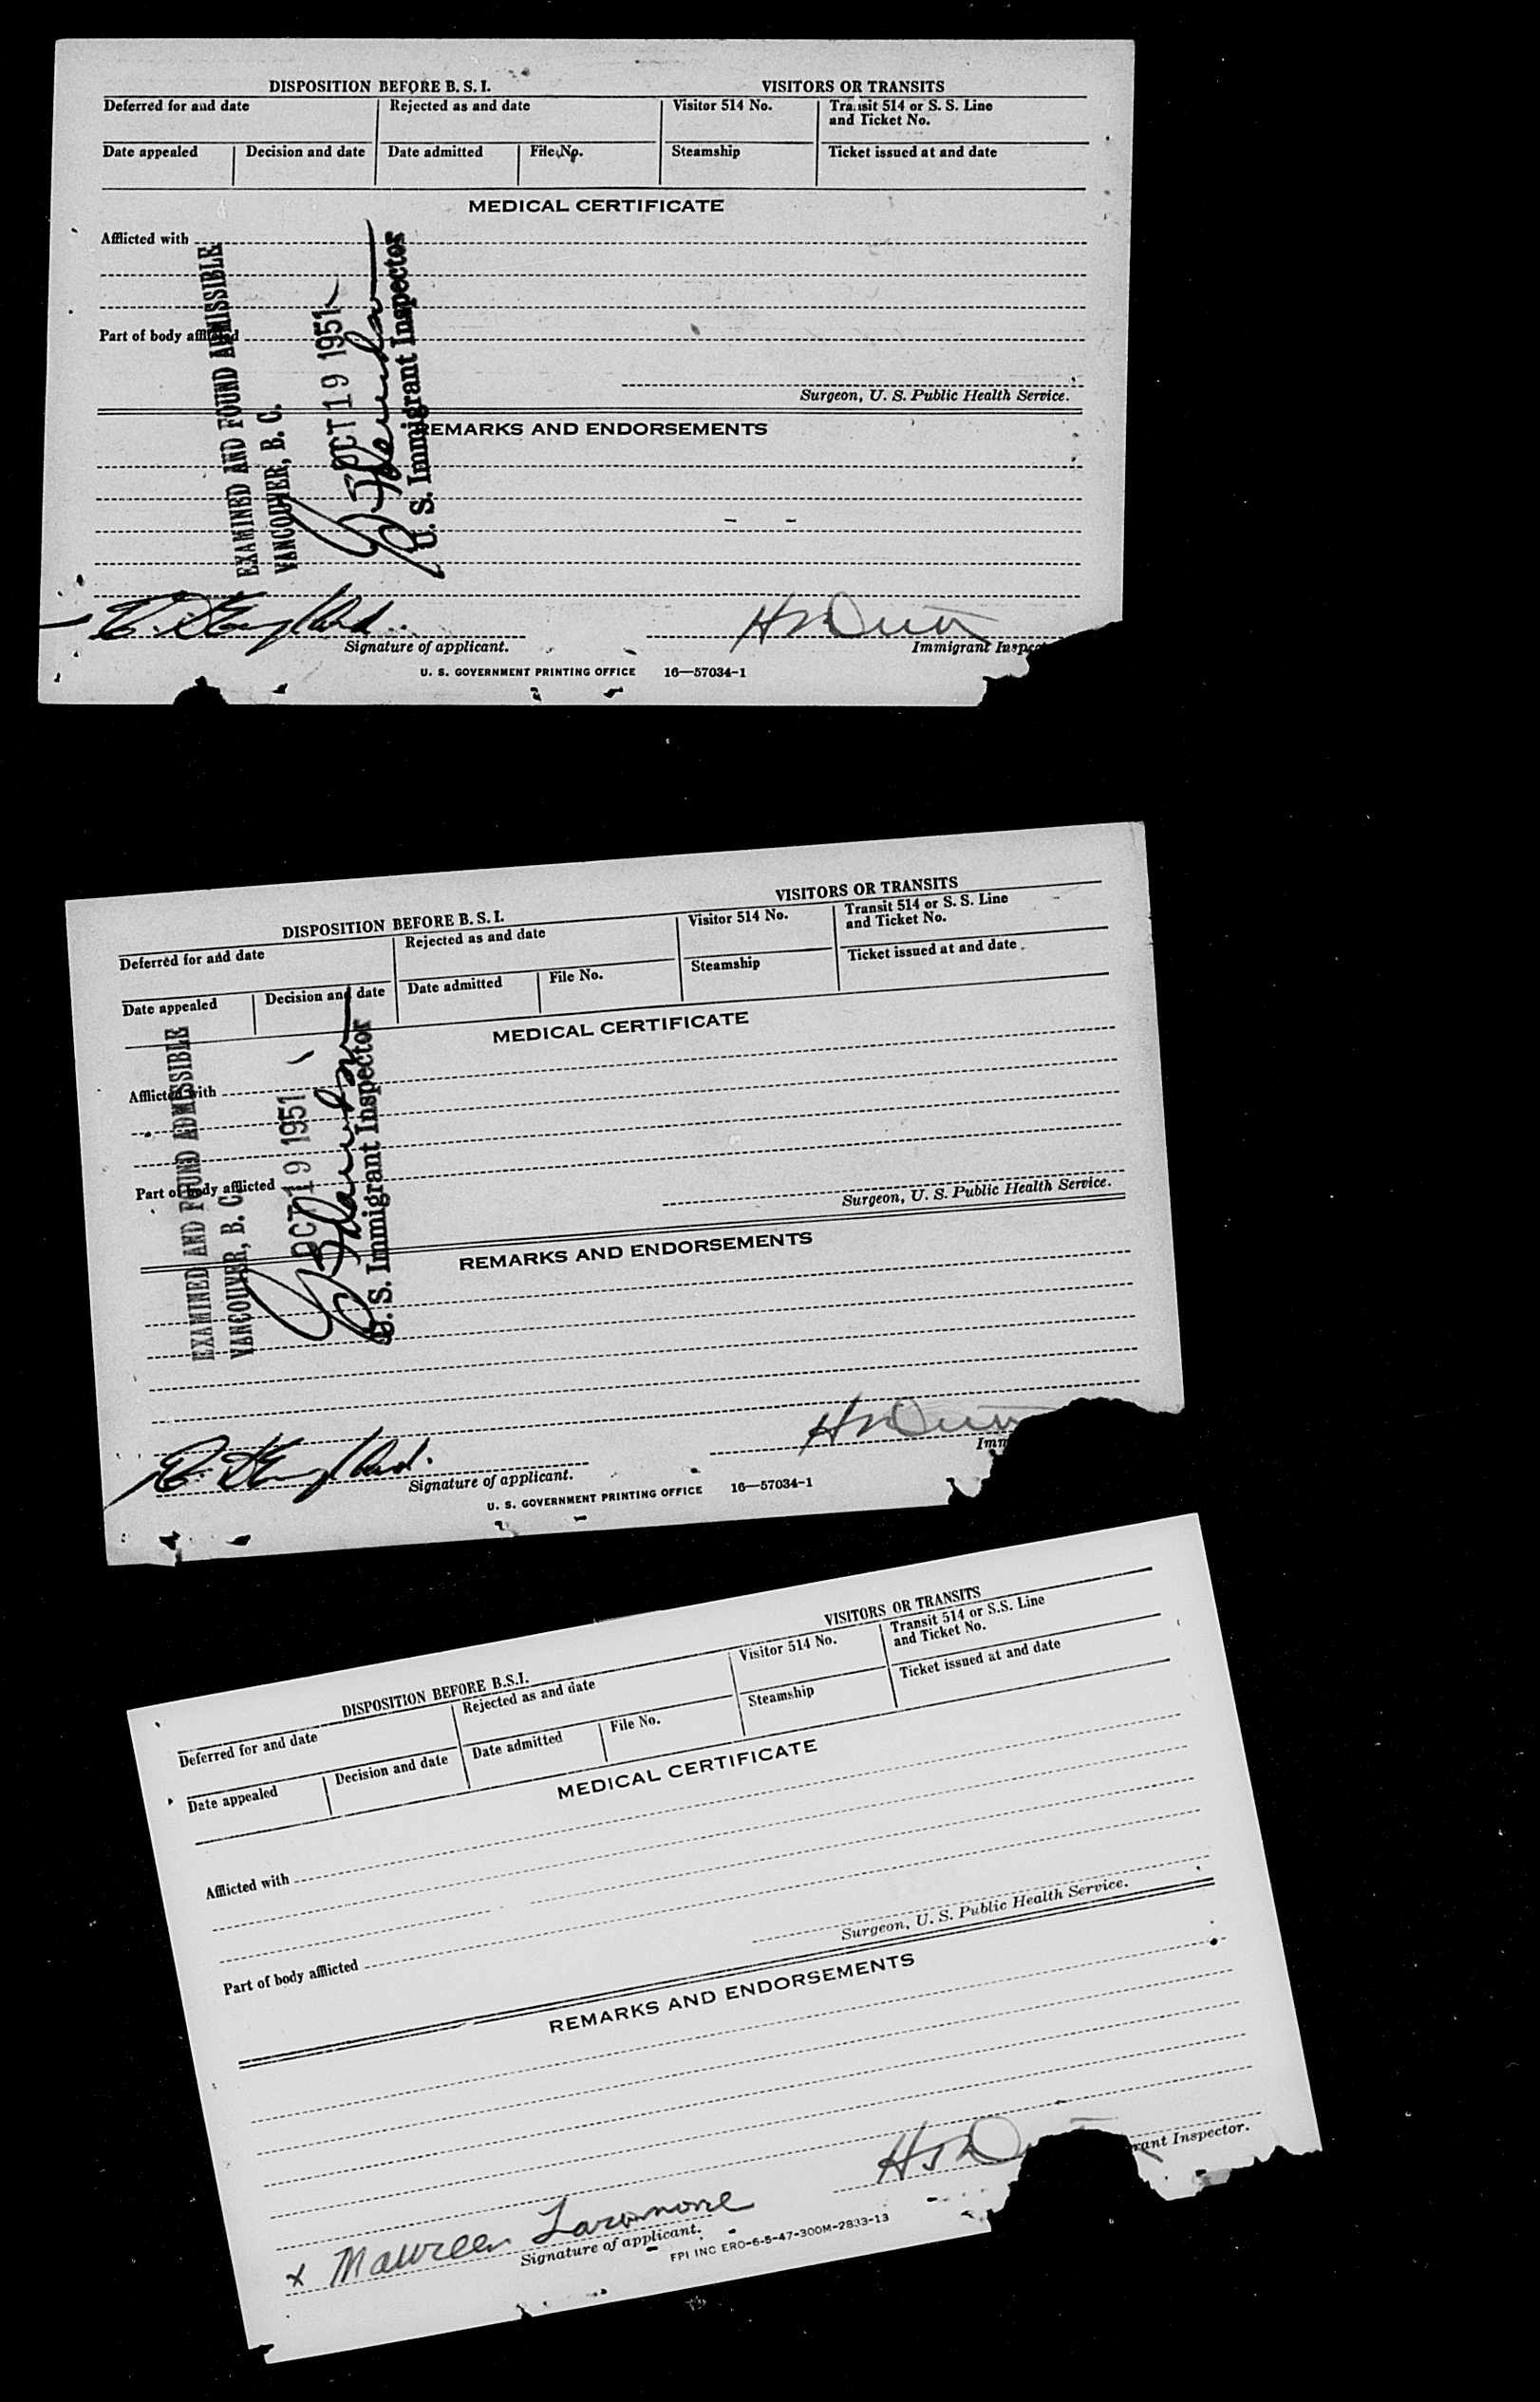 DISPOSITION BEFORE B. S. I.
VISITORS OR TRANSITS
Deferred for and date
Rejected as and date
Visitor 514 No.
Transit 514 or S. S. Line
and Ticket No.
Date appealed
Decision and date
Date admitted
File No.
Steamship
Ticket issued at and date
MEDICAL CERTIFICATE
Afflicted with
Part of body afflicted
Surgeon, U. S. Public Health Service.
REMARKS AND ENDORSEMENTS
EXAMINED AND FOUND ADMISSIBLE
VANCOUVER, B. C.
OCT 19 1951
U. S. Immigrant Inspector
Signature of applicant.
Immigrant Inspec
U. S. GOVERNMENT PRINTING OFFICE 16—57034-1
DISPOSITION BEFORE B. S. I.
VISITORS OR TRANSITS
Deferred for and date
Rejected as and date
Visitor 514 No.
Transit 514 or S. S. Line
and Ticket No.
Date appealed
Decision and date
Date admitted
File No.
Steamship
Ticket issued at and date
MEDICAL CERTIFICATE
Afflicted with
Part of body afflicted
Surgeon, U. S. Public Health Service.
REMARKS AND ENDORSEMENTS
EXAMINED AND FOUND ADMISSIBLE
VANCOUVER, B. C.
OCT 19 1951
U. S. Immigrant Inspector
Signature of applicant.
Imm
U. S. GOVERNMENT PRINTING OFFICE 16—57034-1
DISPOSITION BEFORE B.S.I.
VISITORS OR TRANSITS
Deferred for and date
Rejected as and date
Visitor 514 No.
Transit 514 or S.S. Line
and Ticket No.
Date appealed
Decision and date
Date admitted
File No.
Steamship
Ticket issued at and date
MEDICAL CERTIFICATE
Afflicted with
Part of body afflicted
Surgeon, U. S. Public Health Service.
REMARKS AND ENDORSEMENTS
x Maureen
Signature of applicant.
rant Inspector.
FPI INC ERO-6-5-47-300M-2833-13